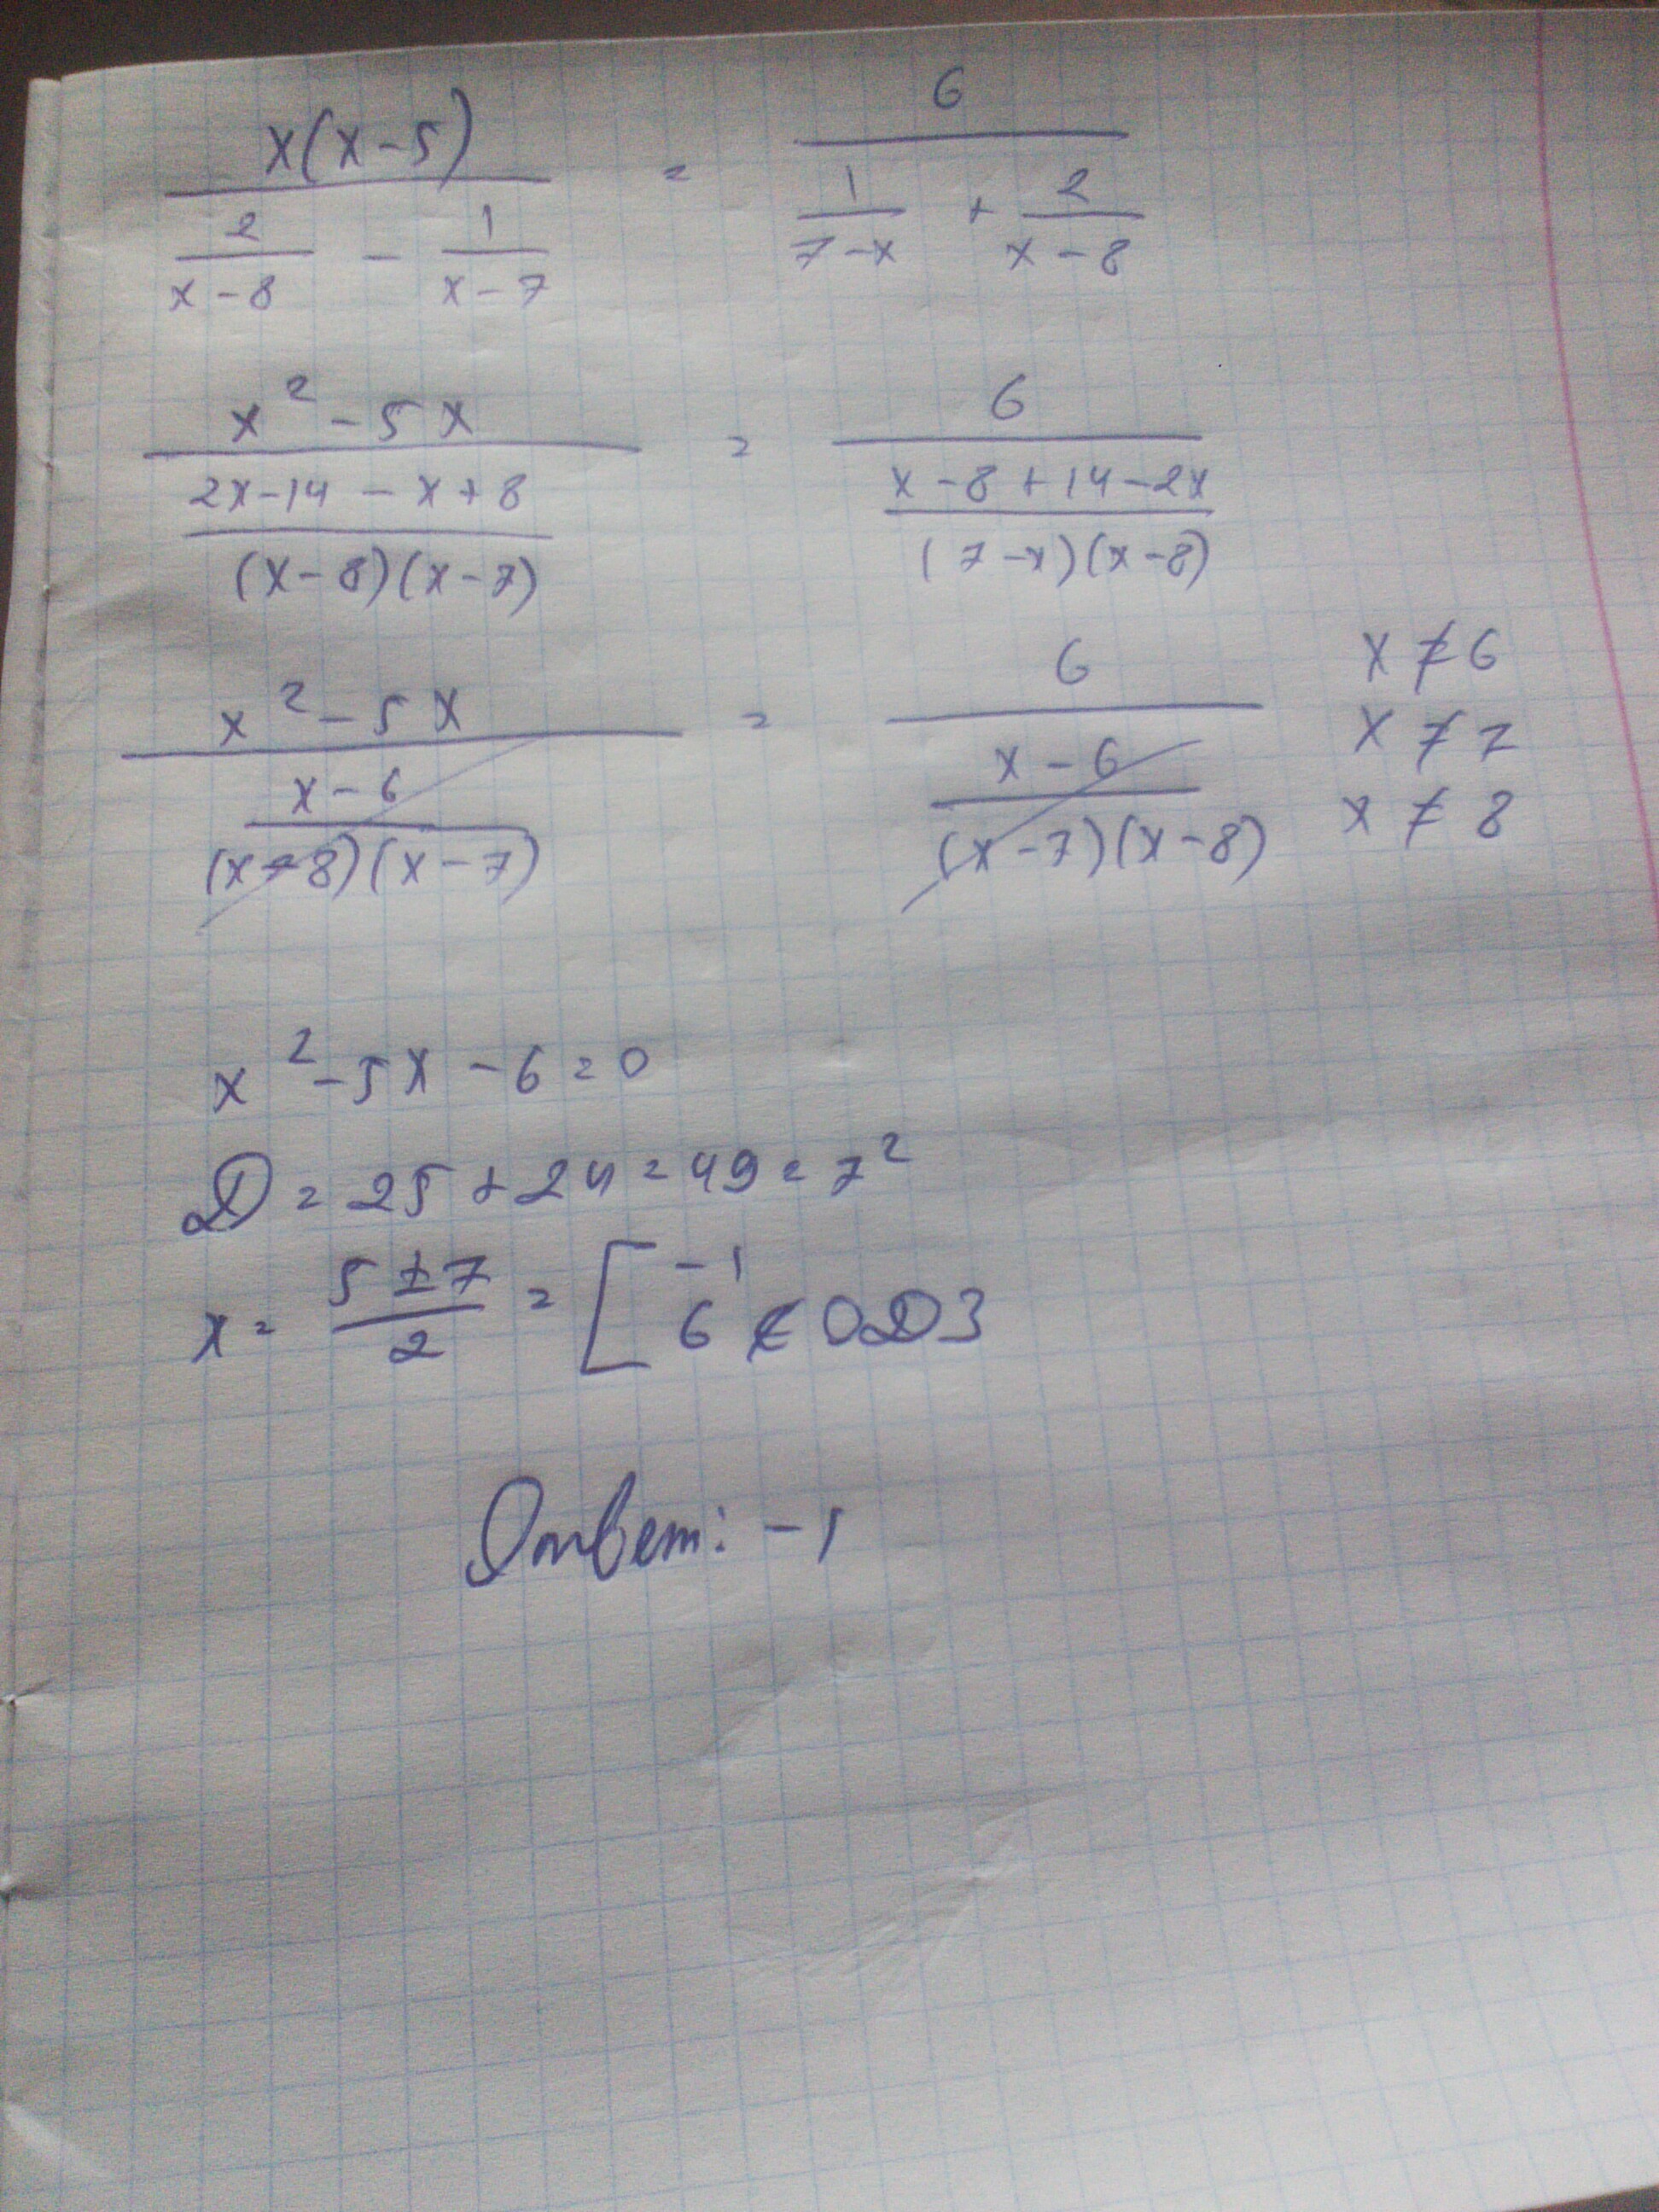 x(x-5) / (2/(x-8) - 1/(x-7)) = 6 / (1/(7-x) + 2/(x-8))
x² - 5x / ((2x-14 - x+8)/((x-8)(x-7))) = 6 / ((x-8+14-2x)/((7-x)(x-8)))
x² - 5x / ((x-6)/((x-8)(x-7))) = 6 / ((x-6)/((x-7)(x-8)))
x ≠ 6
x ≠ 7
x ≠ 8
x² - 5x - 6 = 0
D = 25 + 24 = 49 = 7²
x = (5 ± 7)/2 = [ -1
6 ∉ ОДЗ
Ответ: -1